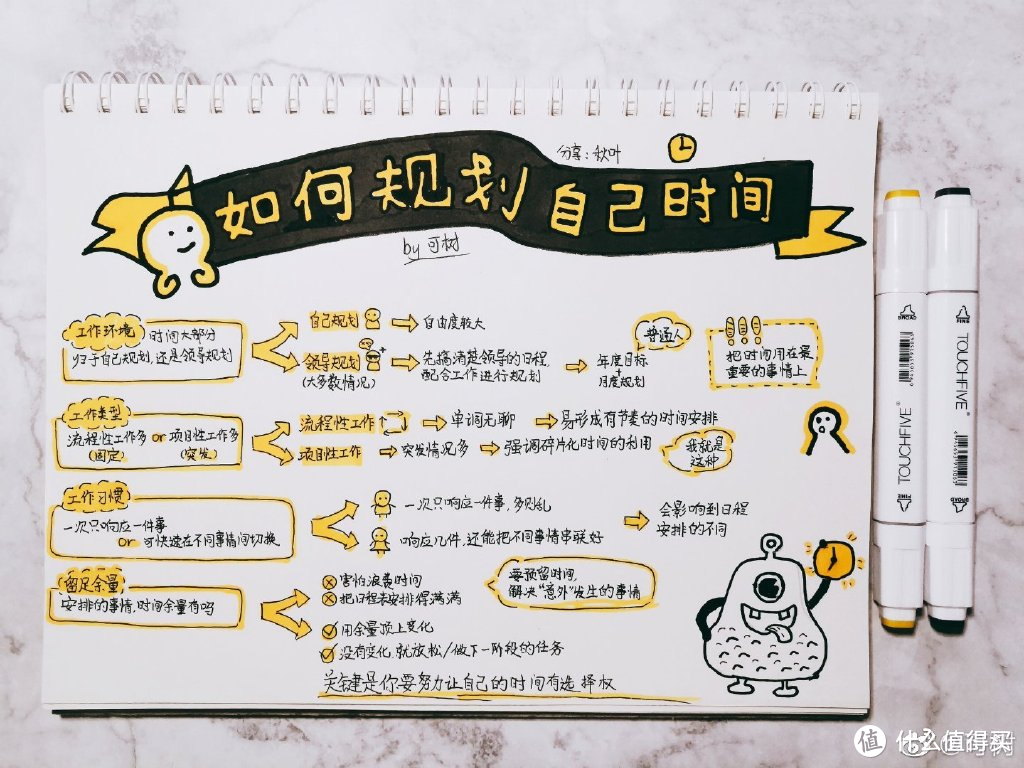 分享：秋叶
如何规划自己时间
by 可树
工作环境
时间大部分
归于自己规划,还是领导规划
自己规划
自由度较大
领导规划
(大多数情况)
先搞清楚领导的日程,
配合工作进行规划
年度目标
+
月度规划
普通人
把时间用在最
重要的事情上
工作类型
流程性工作多 or 项目性工作多
(固定)
(突发)
流程性工作
单调无聊
易形成有节奏的时间安排
项目性工作
突发情况多
强调碎片化时间的利用
我就是
这种
工作习惯
一次只响应一件事
or 可快速在不同事情间切换
一次只响应一件事,多则乱
响应几件,还能把不同事情串联好
会影响到日程
安排的不同
留足余量
安排的事情,时间余量有吗
害怕浪费时间
把日程表安排得满满
用余量顶上变化
没有变化,就放松/做下一阶段的任务
要预留时间,
解决"意外"发生的事情
关键是你要努力让自己的时间有选择权
TOUCHFIVE
TOUCHFIVE
FINE
值 什么值得买